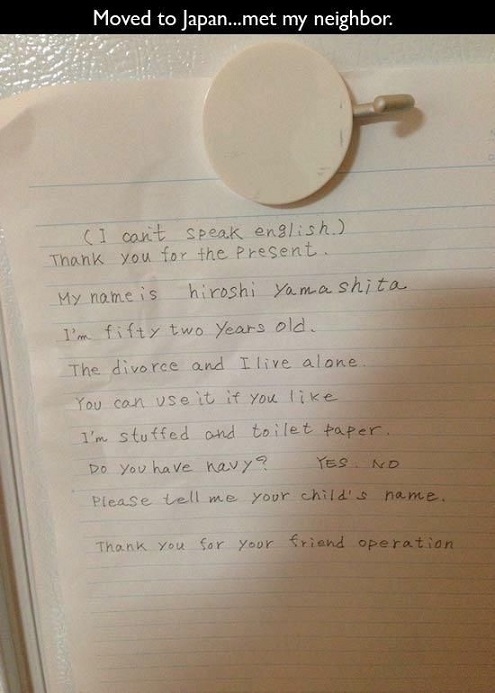 Moved to Japan...met my neighbor.
(I can't speak english.)
Thank you for the Present.
My name is hiroshi Yamashita
I'm fifty two years old.
The divorce and I live alone.
You can use it if you like
I'm stuffed and toilet paper.
Do you have navy? YES NO
Please tell me your child's name.
Thank you for your friend operation